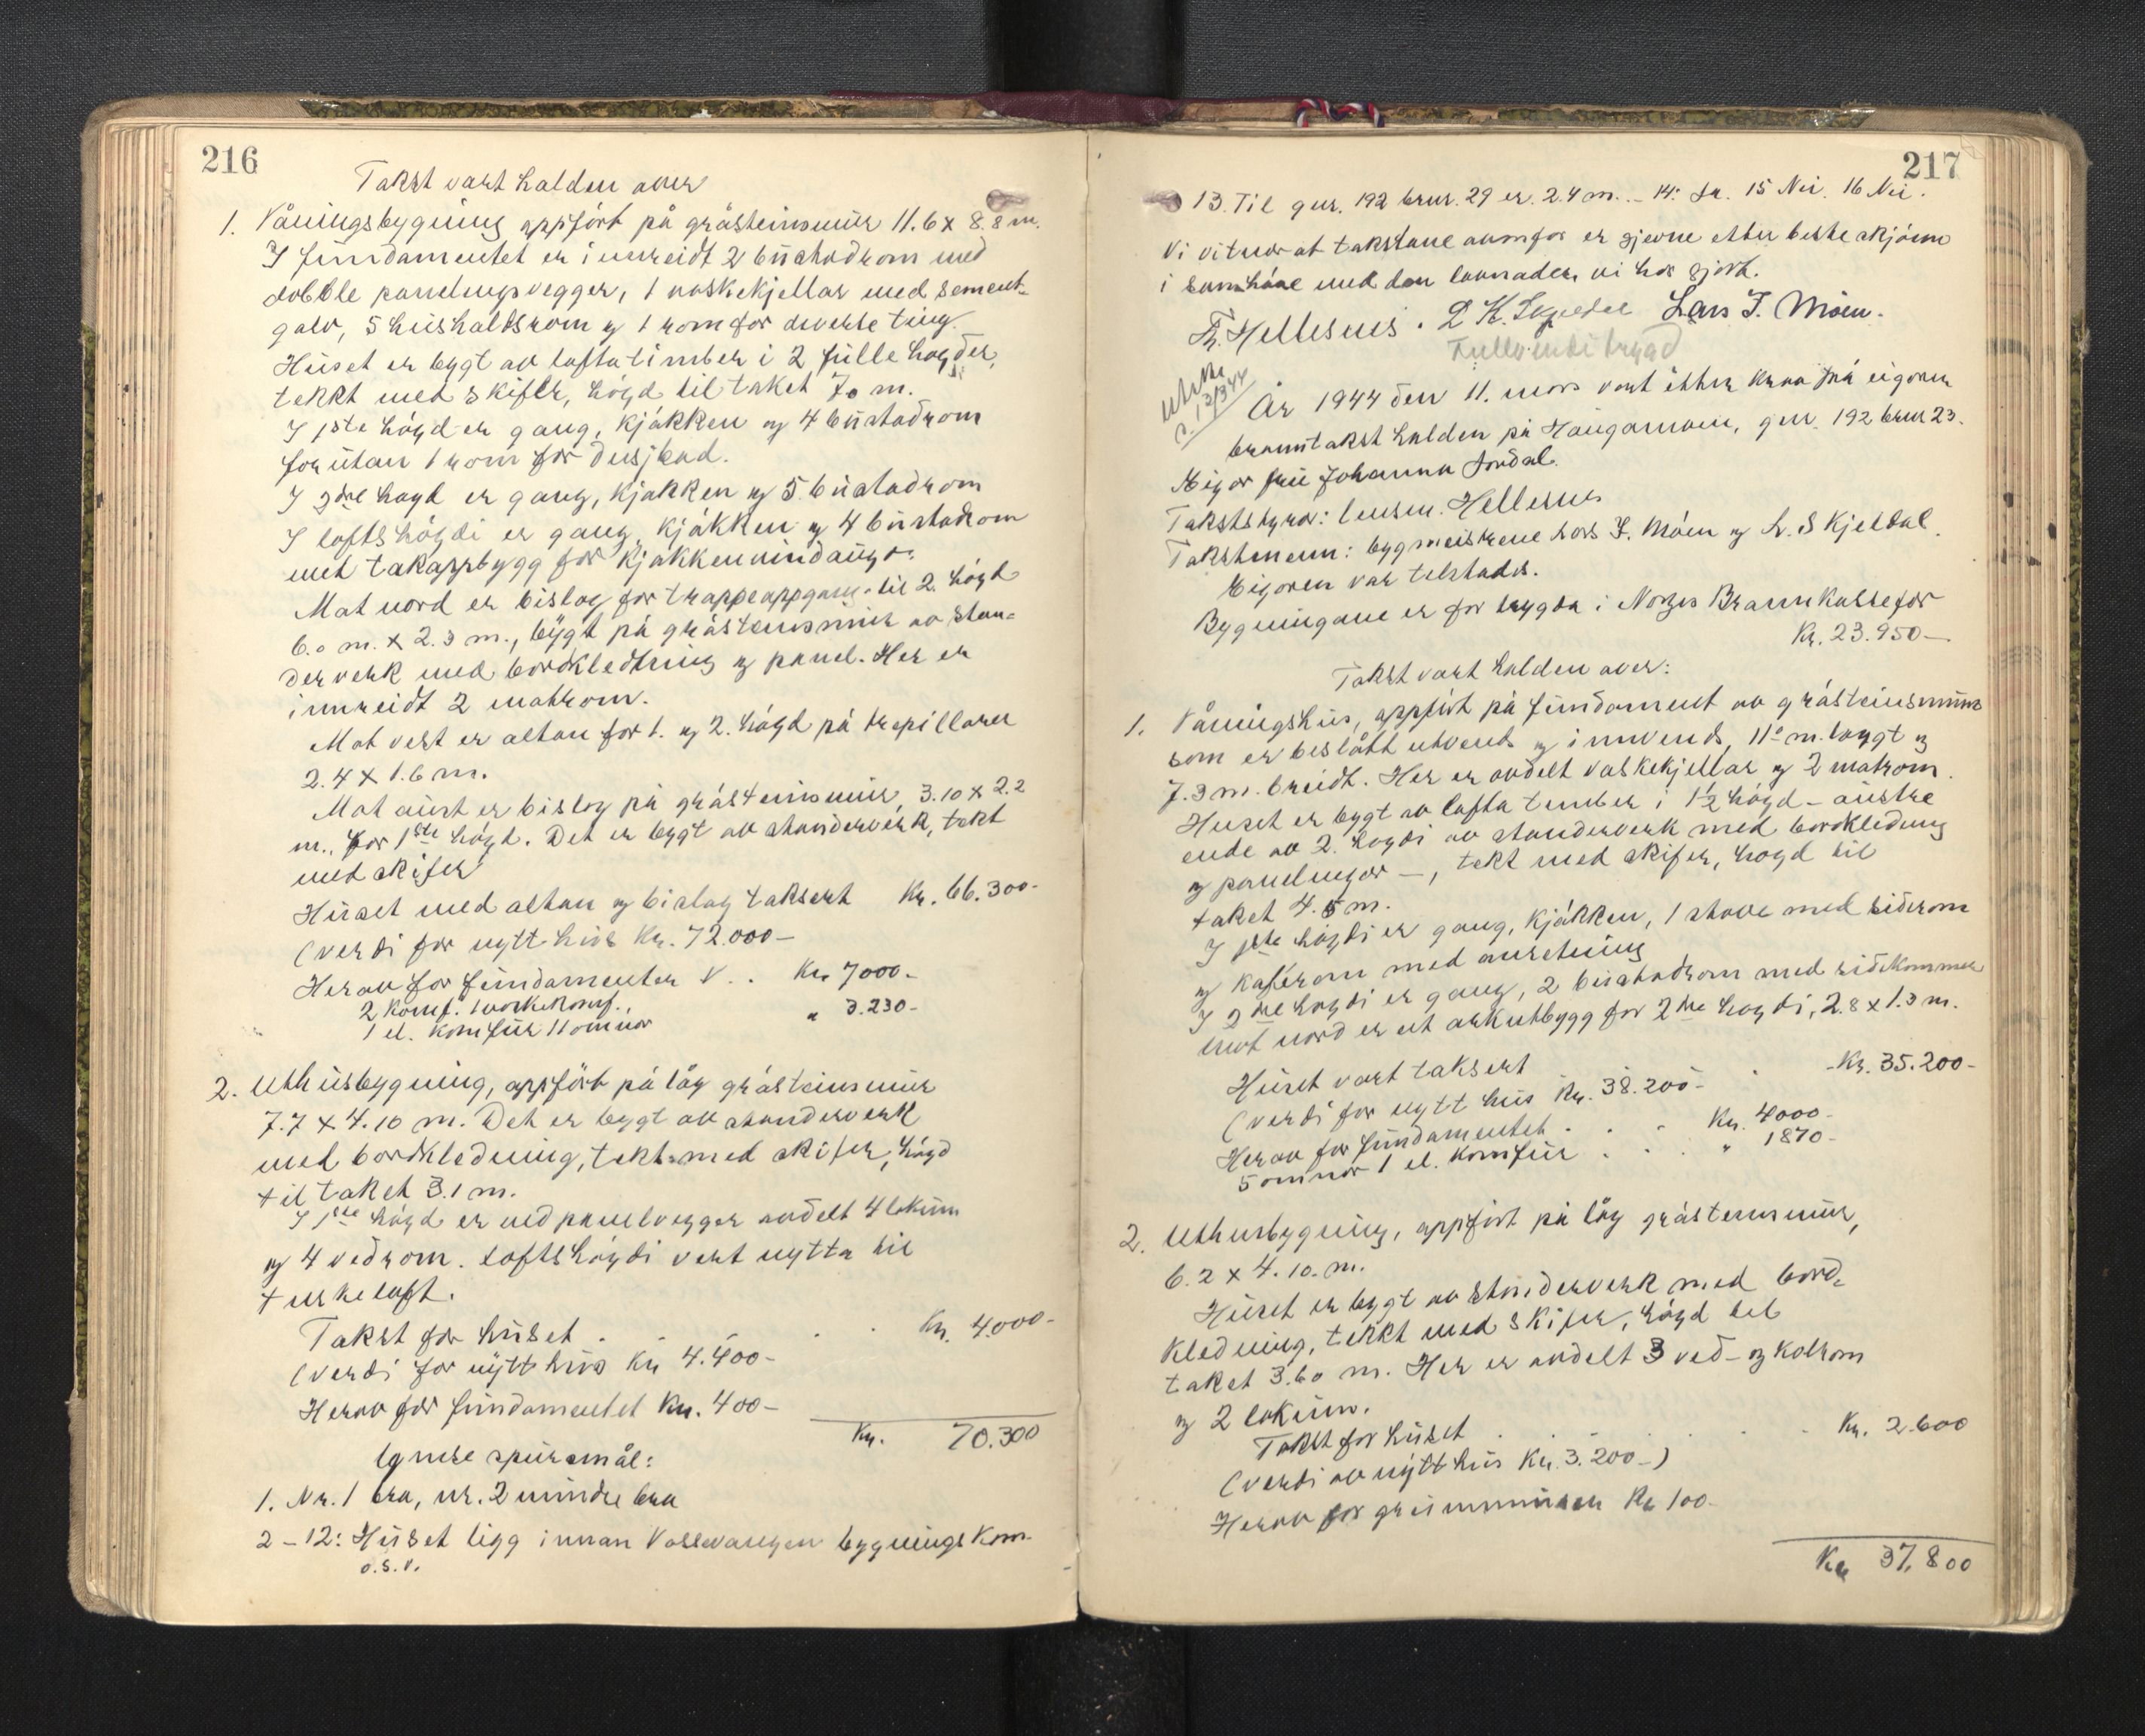 216
Takst vart halden over
1. Våningsbygning oppført på gråsteinsmur 11.6 x 8.8 m.
I fundamentet er innreidt 2 bustadrom med
dobble panelingsvegger, 1 vaskekjellar med sement-
golv, 5 hushaldsrom og 1 rom for diverse ting.
Huset er bygt av lafta timber i 2 fulle høgder,
tekkt med skifer, høgd til taket 7.0 m.
I 1ste høgd er gang, kjøkken og 4 bustadrom
forutan 1 rom for dusjbad.
I 2dre høgd er gang, kjøkken og 5 bustadrom
I loftshøgdi er gang, kjøkken og 4 bustadrom
med takoppbygg for kjøkkenvindauga.
Mot nord er bislag for trappeoppgang til 2. høgd
6.0 m. x 2.3 m., bygt på gråsteinsmur av stan-
derverk med bordkledning og panel. Her er
innreidt 2 matrom.
Mot vest er altan for 1. og 2. høgd på trepillarer
2.4 x 1.6 m.
Mot aust er bislag på gråsteinsmur, 3.10 x 2.2
m., for 1ste høgd. Det er bygt av standerverk, tekt
med skifer
Huset med altan og bislag taksert Kr. 66.300-
(verdi for nytt hus Kr. 72.000-
Herav for fundamenter . . Kr. 7000-
2 komf. 1 vaskekomf.,
1 el. komfur 11 omnar " 3.230-
2. Uthusbygning, oppført på låg gråsteinsmur
7.7 x 4.10 m. Det er bygt av standerverk
med bordkledning, tekt med skifer, høgd
til taket 3.1 m.
I 1ste høgd er ved panelvegger avdelt 4 lokum
og 4 vedrom. Loftshøgdi vert nytta til
turkeloft.
Takst for huset . . . . . Kr. 4000-
(verdi for nytt hus Kr 4.400-
Herav for fundamentet Kr. 400-
Kr. 70.300
Ymse spursmål:
1. Nr. 1 bra, nr. 2 mindre bra
2-12: Huset ligg innan Vossevangen bygningskom.
o.s.v.
217
13. Til gnr. 192 brnr. 29 er 2.4 m. - 14: Ja. 15 Nei. 16 Nei.
Vi vitnar at takstane ovanfor er gjevne etter beste skjønn
i samhøve med den lovnaden vi har gjort.
Th. Hellesnes. L K. Skjeldal Lars I. Møen.
Fullverdi trygd
Utskr.
s. 13/3 44
År 1944 den 11. mars vart etter krav frå eigaren
branntakst halden på Haugamoen, gnr. 192 brnr 23.
Eigar fru Johanna Jordal.
Takststyrar: lensm. Hellesnes
Takstmenn: bygmeistrene Lars I. Møen og L. Skjeldal.
Eigaren var tilstades.
Bygningane er før trygda i Norges Brannkasse for
Kr. 23.950-
Takst vart halden over:
1. Våningshus, oppført på fundament av gråsteinsmur
som er beslått utvends og innvends, 11.0 m. langt og
7.3 m. breidt. Her er avdelt vaskekjellar og 2 matrom.
Huset er bygt av lafta timber i 1½ høgd - austre
ende av 2. høgdi av standerverk med bordkledning
og panelingar -, tekt med skifer, høgd til
taket 4.5 m.
I 1ste høgdi er gang, kjøkken, 1 stove med siderom
og kaferom med anretning
I 2dre høgdi er gang, 2 bustadrom med sidekammer
Mot nord er eit arkutbygg for 2dre høgdi, 2.8 x 1.3 m.
Huset vart taksert . . Kr. 35.200-
(verdi for nytt hus Kr. 38.200-
Herav for fundamentet . . . Kr. 4000-
5 omnar 1 el. komfur . . . " 1870-
2. Uthusbygning, oppført på låg gråsteinsmur,
6.2 x 4.10. m.
Huset er bygt av standerverk med bord-
kledning, tekkt med skifer, høgd til
taket 3.60 m. Her er avdelt 3 ved- og kolrom
og 2 lokum.
Takst for huset . . . . Kr. 2.600
(verdi av nytt hus Kr. 3.200-)
Herav for grunnmuren Kr 100-
Kr 37.800